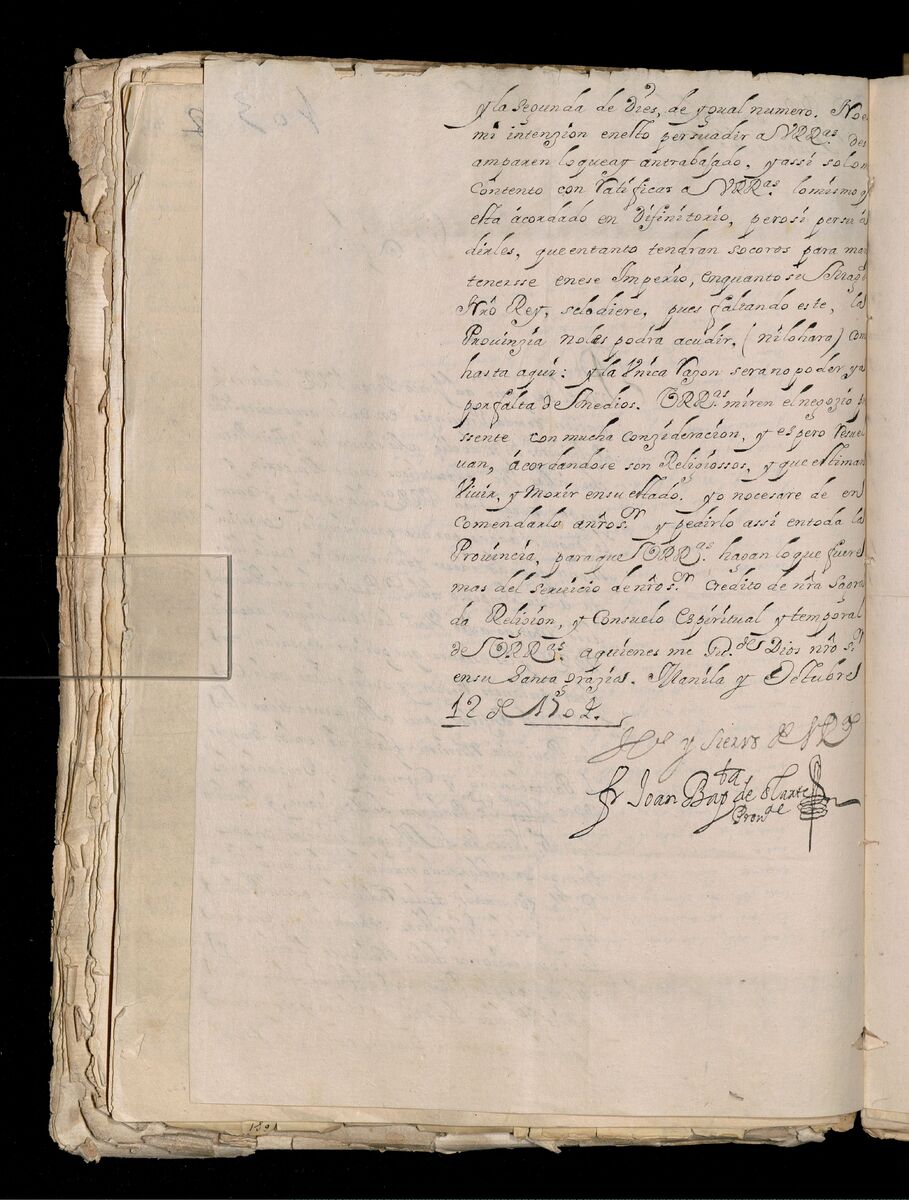 y la segunda de Dies, de ygual numero. No e
mi intenzion en esto persuadir a VRR.as des
amparen lo que ay antrabajado, y assi solo m
Contento con Ratificar a VRR.as lo mismo q
esta acordado en Difinitorio, pero si persua
dirles, que entanto tendran socoros para man
tenersse en ese Imperio, en quanto su Mag.d
Nrô Rey, selo diere, pues faltando este, la
Prouinzia no les podra acudir, (ni lo hara) como
hasta aqui: y la Vnica Razon sera no poder, ya
por falta de Medios. VRR.as miren el negozio pre
ssente con mucha Conzideracion, y espero Resuel
uan, acordandose son Religiossos, y que estiman
Viuir, y Morir en su estado. yo no cesare de en
comendarlo a nrô s.r y pedirlo assi en toda la
Prouincia, para que VRR.as hagan lo que fuere
mas del seruicio de nrô s.r Credito de nrâ Sagra
da Religion, y Consuelo Espiritual y temporal
de VRR.as a quienes me Gu.de Dios nrô s.r
en su Santa grazia. Manila y Octubre
12 de 1702.
y sieruo de VRR.as
fr Joan Bap.ta de Olarte
Prou.al
403
2
1301